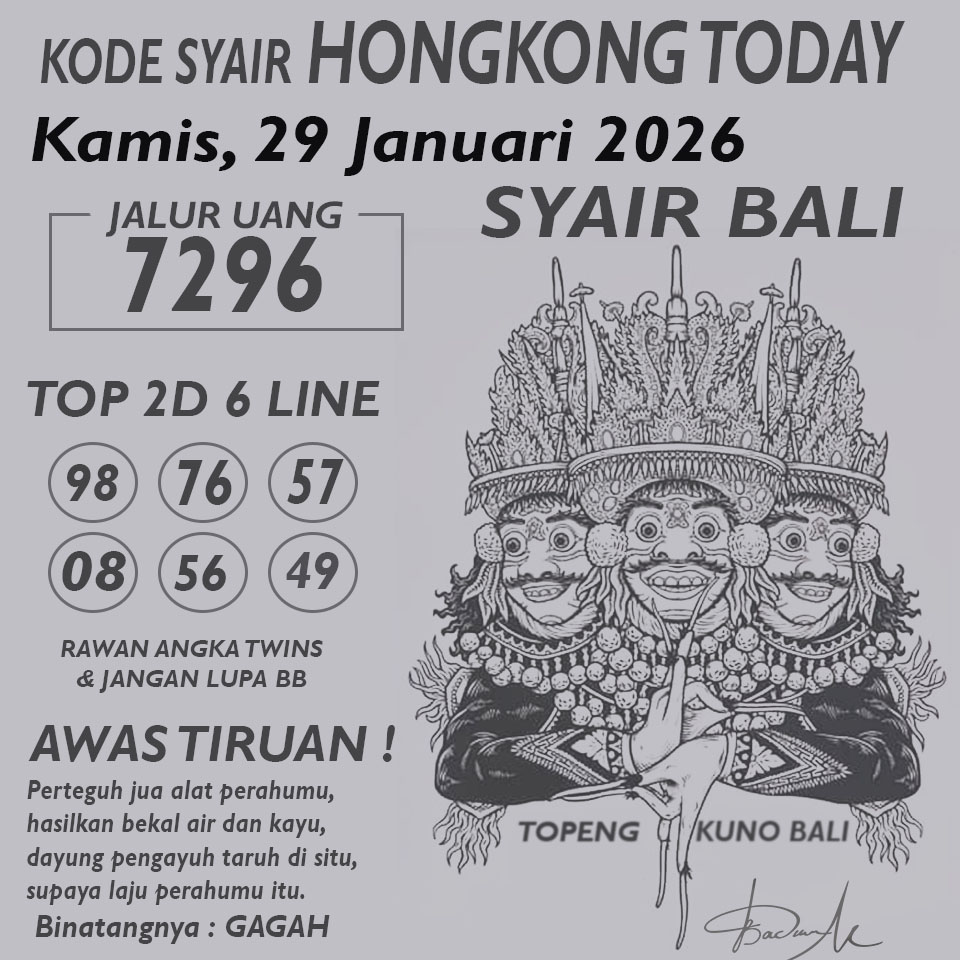 KODE SYAIR HONGKONG TODAY
Kamis, 29 Januari 2026
SYAIR BALI
JALUR UANG
7296
TOP 2D 6 LINE
98 76 57
08 56 49
RAWAN ANGKA TWINS
& JANGAN LUPA BB
AWAS TIRUAN !
Perteguh jua alat perahumu,
hasilkan bekal air dan kayu,
dayung pengayuh taruh di situ,
supaya laju perahumu itu.
Binatangnya : GAGAH
TOPENG KUNO BALI